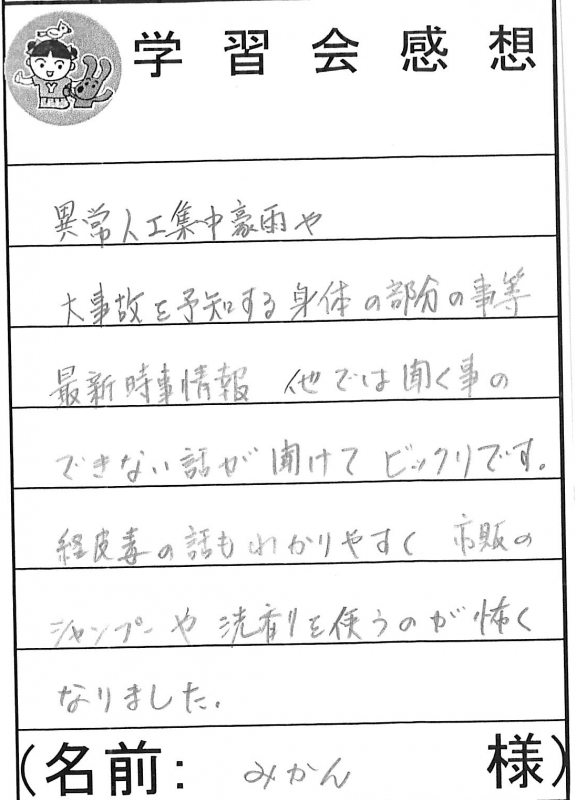 学習会感想
異常人工集中豪雨や
大事故を予知する身体の部分の事等
最新時事情報 他では聞く事の
できない話が聞けてビックリです。
経皮毒の話もわかりやすく 市販の
シャンプーや洗剤を使うのが怖く
なりました。
(名前: みかん 様)